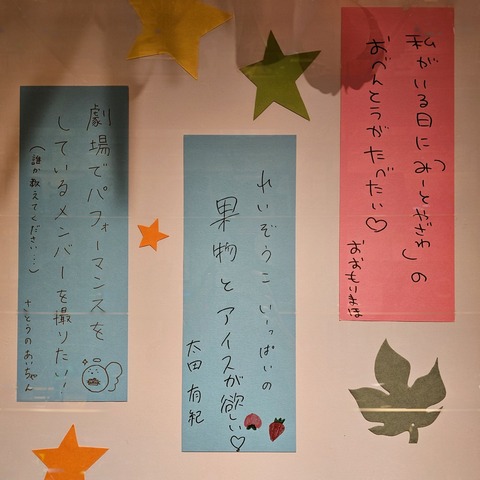 私がいる日に「みーとやざわ」の
おべんとうがたべたい♡
おおもりまほ
れいぞうこいーっぱいの
果物とアイスが欲しい♡
太田有紀
劇場でパフォーマンスを
しているメンバーを撮りたい!
(誰か教えてください…)
さとうのあいちゃん